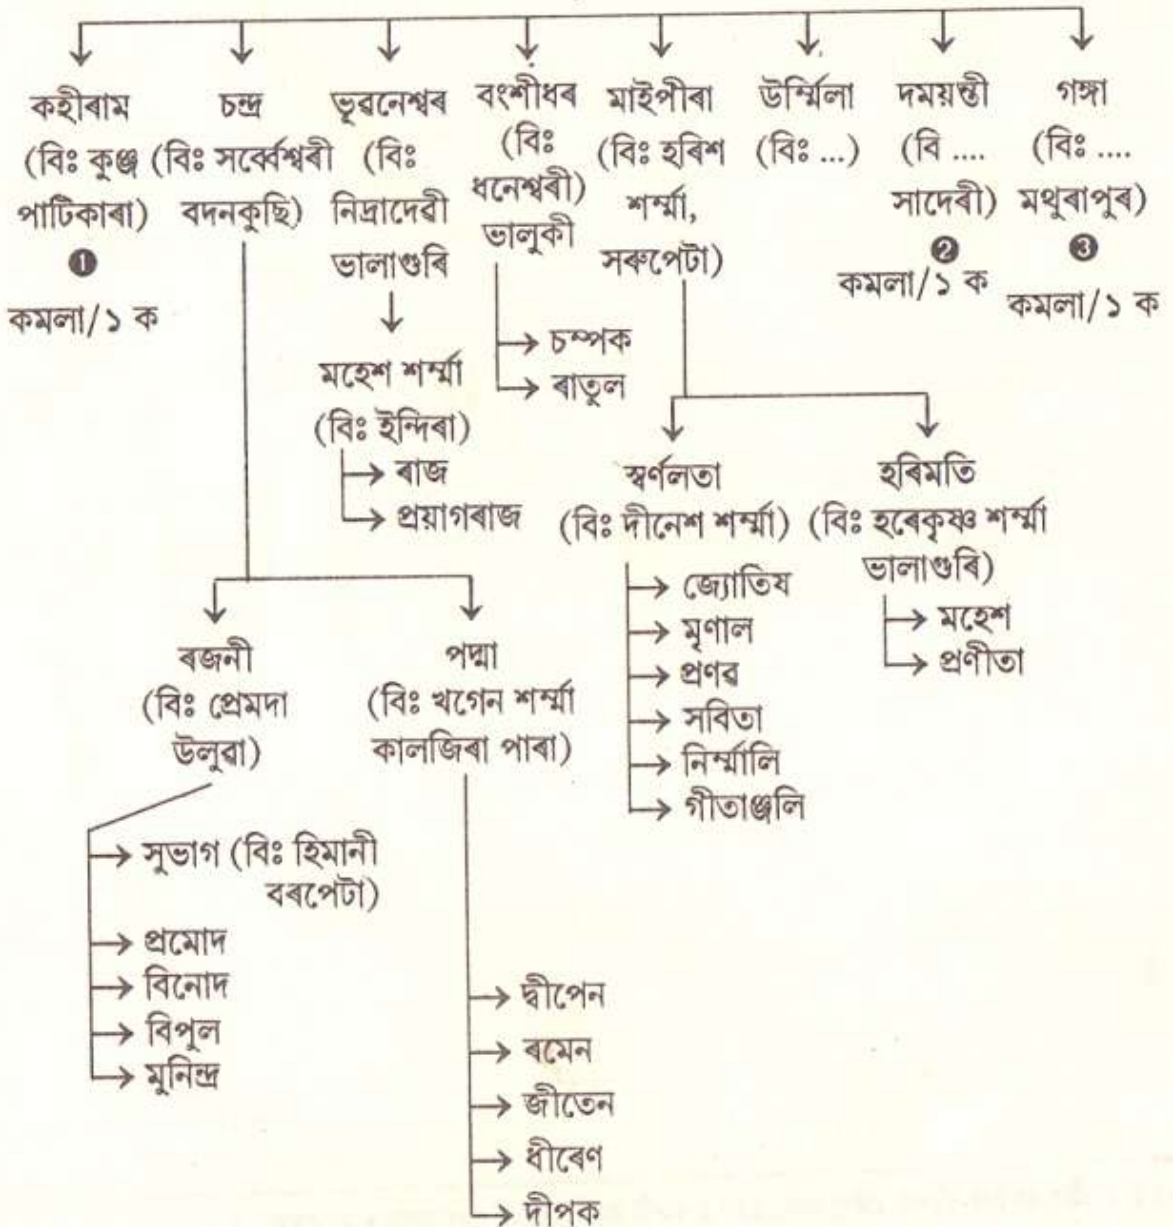 কহীৰাম
(বিঃ কুঞ্জ
পাটিকাৰা)
❶
কমলা/১ ক
চন্দ্ৰ
(বিঃ সৰ্ব্বেশ্বৰী
বদনকুছি)
ভূৱনেশ্বৰ
(বিঃ
নিদ্ৰাদেৱী
ভালাগুৰি
মহেশ শৰ্ম্মা
(বিঃ ইন্দিৰা)
ৰাজ
প্ৰয়াগৰাজ
বংশীধৰ
(বিঃ
ধনেশ্বৰী)
ভালুকী
চম্পক
ৰাতুল
মাইপীৰা
(বিঃ হৰিশ
শৰ্ম্মা,
সৰুপেটা)
উৰ্ম্মিলা
(বিঃ ...)
দময়ন্তী
(বি ....
সাদেৰী)
❷
কমলা/১ ক
গঙ্গা
(বিঃ ....
মথুৰাপুৰ)
❸
কমলা/১ ক
স্বৰ্ণলতা
(বিঃ দীনেশ শৰ্ম্মা)
জ্যোতিষ
মৃণাল
প্ৰণৱ
সবিতা
নিৰ্ম্মালি
গীতাঞ্জলি
হৰিমতি
(বিঃ হৰেকৃষ্ণ শৰ্ম্মা
ভালাগুৰি)
মহেশ
প্ৰণীতা
ৰজনী
(বিঃ প্ৰেমদা
উলুৱা)
সুভাগ (বিঃ হিমানী
বৰপেটা)
প্ৰমোদ
বিনোদ
বিপুল
মুনিন্দ্ৰ
পদ্মা
(বিঃ খগেন শৰ্ম্মা
কালজিৰা পাৰা)
দ্বীপেন
ৰমেন
জীতেন
ধীৰেণ
দীপক